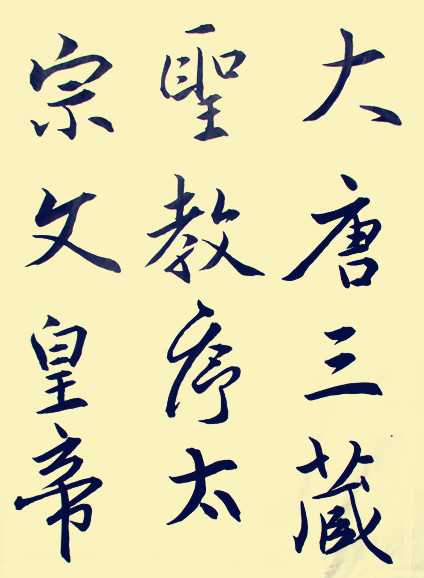 大唐三藏
聖教序太
宗文皇帝